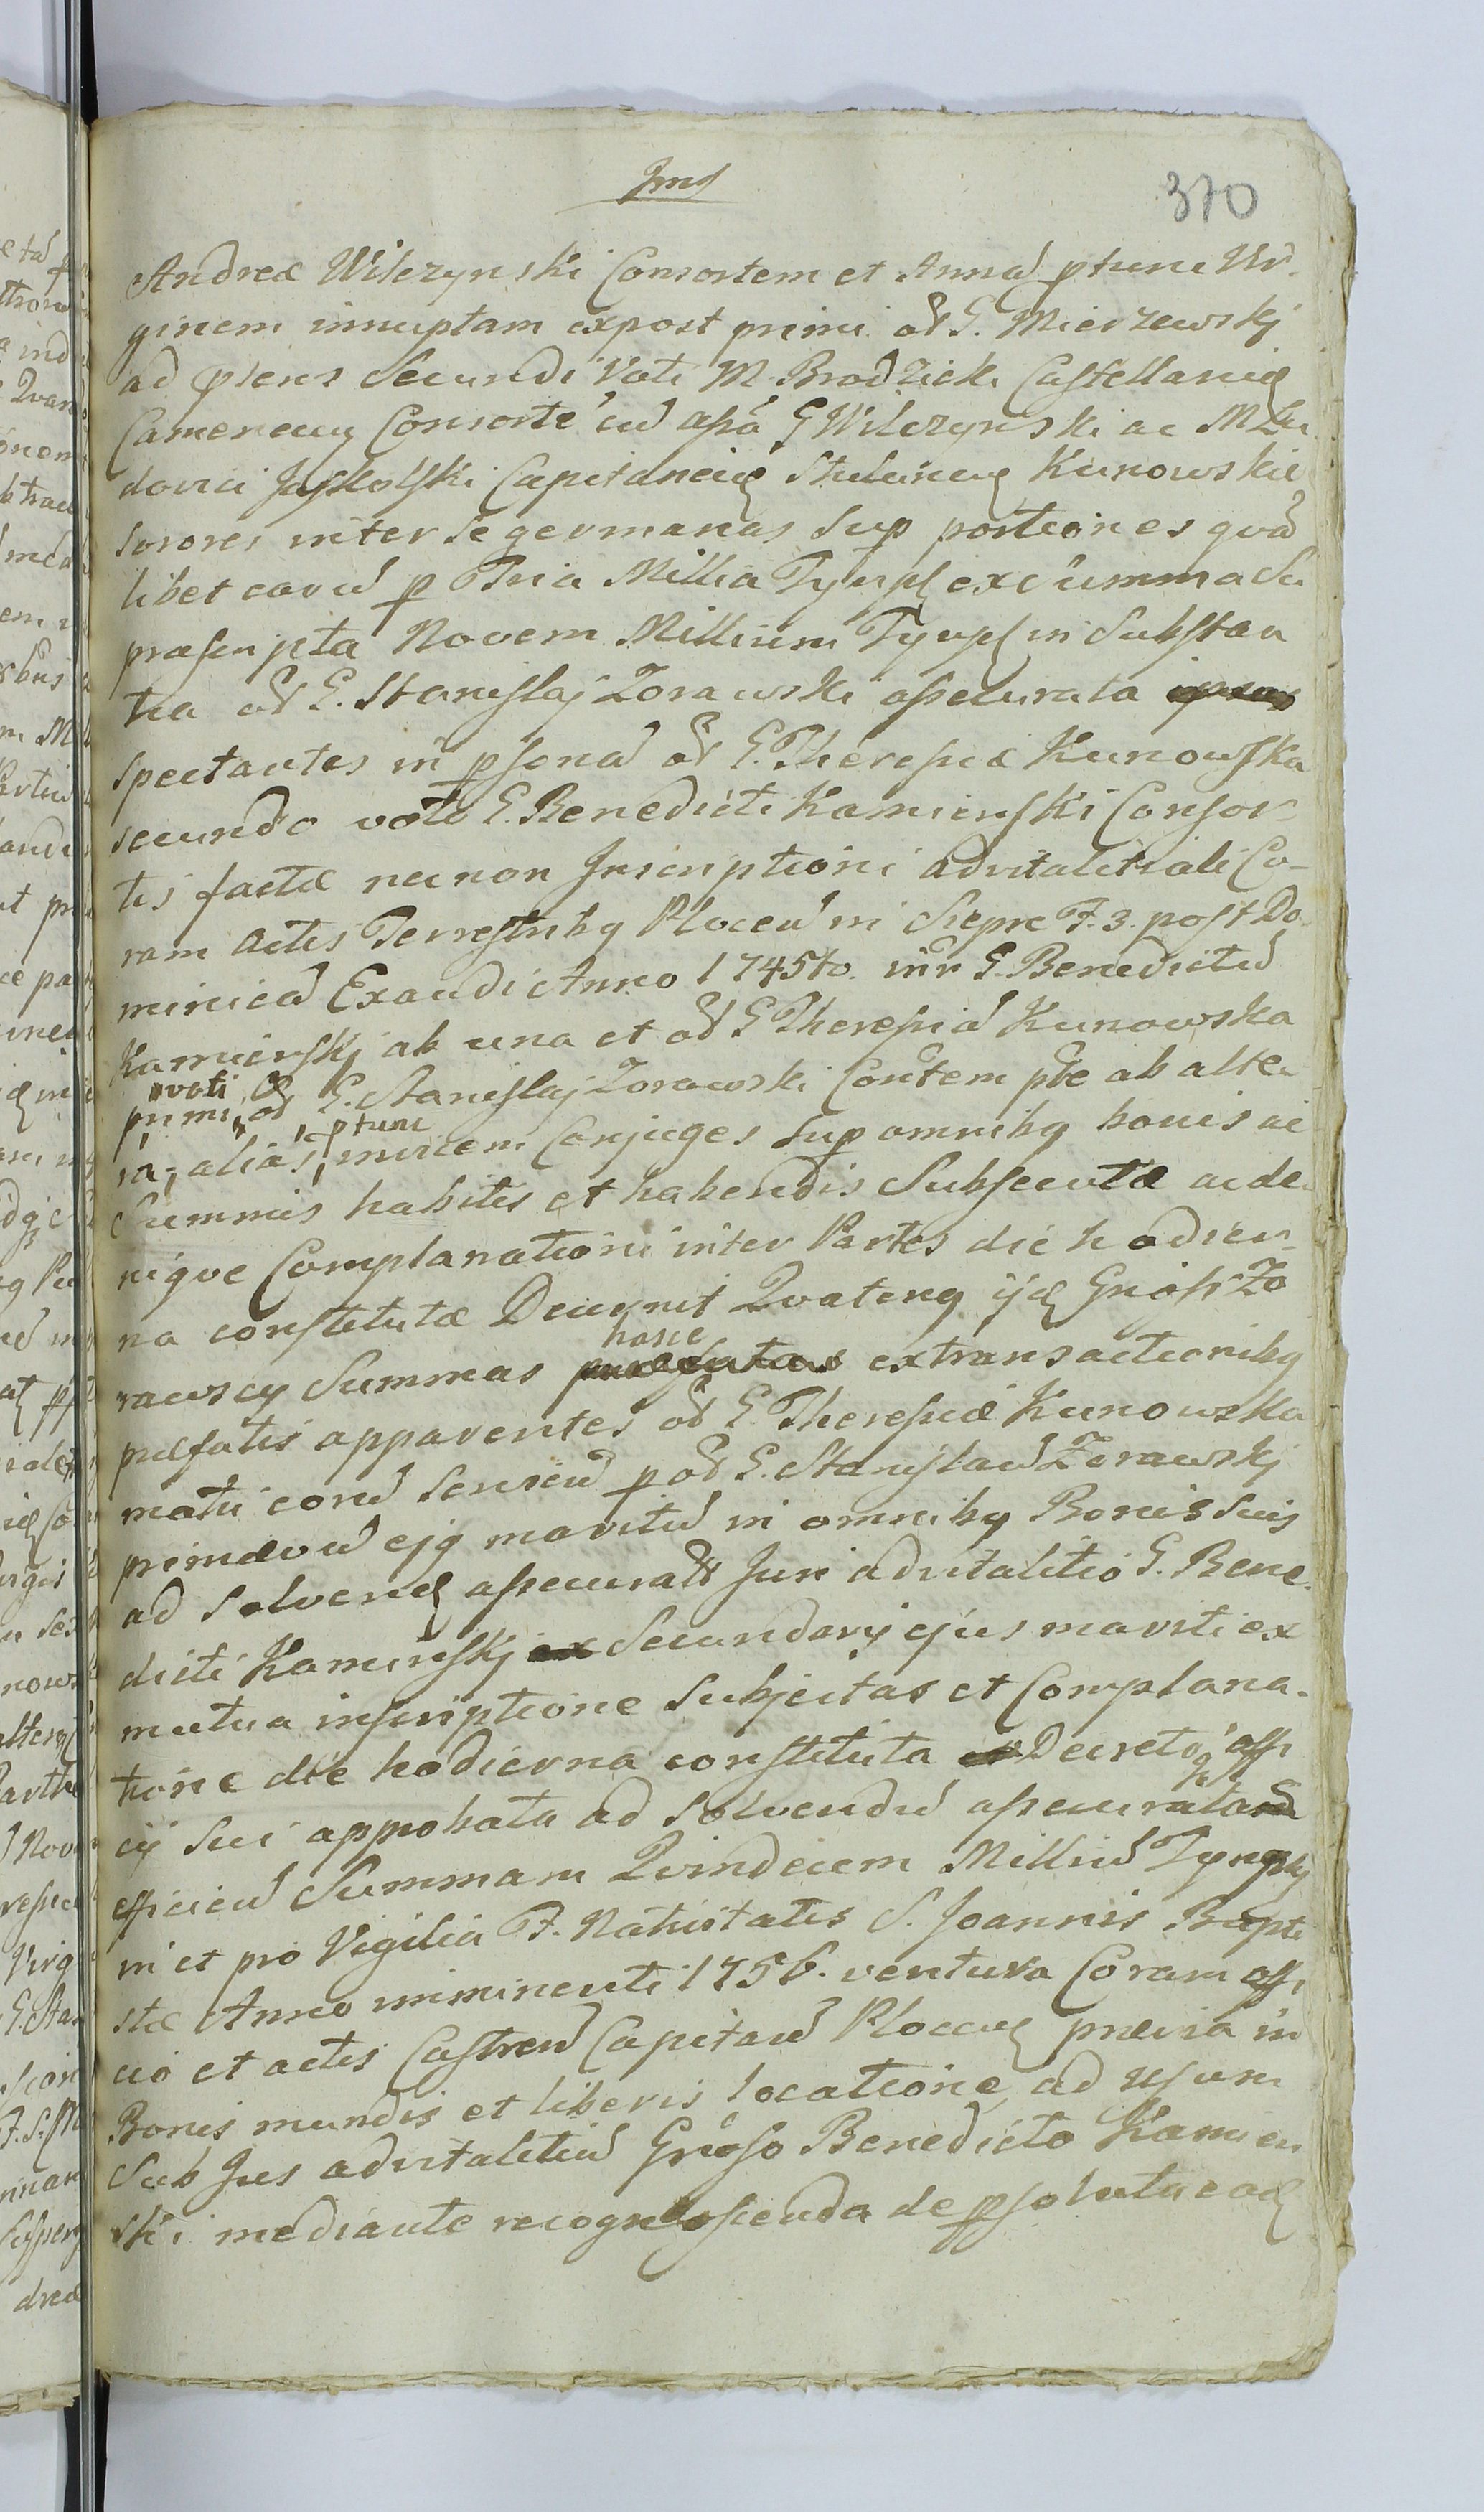 370
Andreæ Wilczynski Consortem et Annã ptunc Vir-
ginem innuptam expost primi od G. Mierzewskj
ad p̱sens Secundi Voti M. Brodzicki Castellanici
Camenecen Consorte cũ assã G Wilczynski ac M Lu
dovici Jaskolski Capitaneici Kunowskie
sorores inter se germanas Sup portiones qvã
libet earũ p Tria Millia Tynph ex Summa Su
prascripta Novem Millium Tynph in Substan
tia od G. Stanislaj Zorawski assecurata
spectantes in psonã od G. Theresiæ Kunowska
secundo voto G. Benedicti Kamienski Consor-
tis factæ necnon Inscriptioni advitalitiali Co-
ram Actis Terrestribq Plocen in Sieprc F. 3. post Do-
minicã Exaudi Anno 1745to. intr G. Benedictũ
Kamienskj ab una et od G Theresiã Kunowska
primi voti od G. Stanislaj Zorawski Consortem pte ab alte-
ra, alias ptunc invicem Conjuges Sup omnibq bonis ac
Summis habitis et habendis Subsecutæ ac de-
niqve Complanationi inter Partes die hodier-
na constitutæ Decernit Qvatenq ijd Gnosi Zo
rawscy Summas hasce ex transactionibq
præfatis apparentes od G Theresiæ Kunowska
matri eorũ Servien p od G. Stanislaũ Zorawskj
primævũ ejq maritũ in omnibq Bonis Suis
ad Solvend assecuratas Juri advitalitio G. Bene-
dicti Kamienskj Secundarij ejus mariti ex
mutua inscriptione Subjectas et Complana-
tione die hodierna constituta Decretoq offi
cij Sui approbata ad Solvendũ assecuratas
efficien Summam Qvindecem Milliũ Tynph
in et pro Vigilia F. Nativitatis S. Joannis Bapti
stæ Anno imminenti 1756. ventura Coram offi
cio et actis Castren Capitan Plocen prævia in
Bonis mundis et liberis locatione ad usum
Sub Jus advitalitiũ Gnoso Benedicto Kamien
ski mediante recognoscenda de psoluta ead